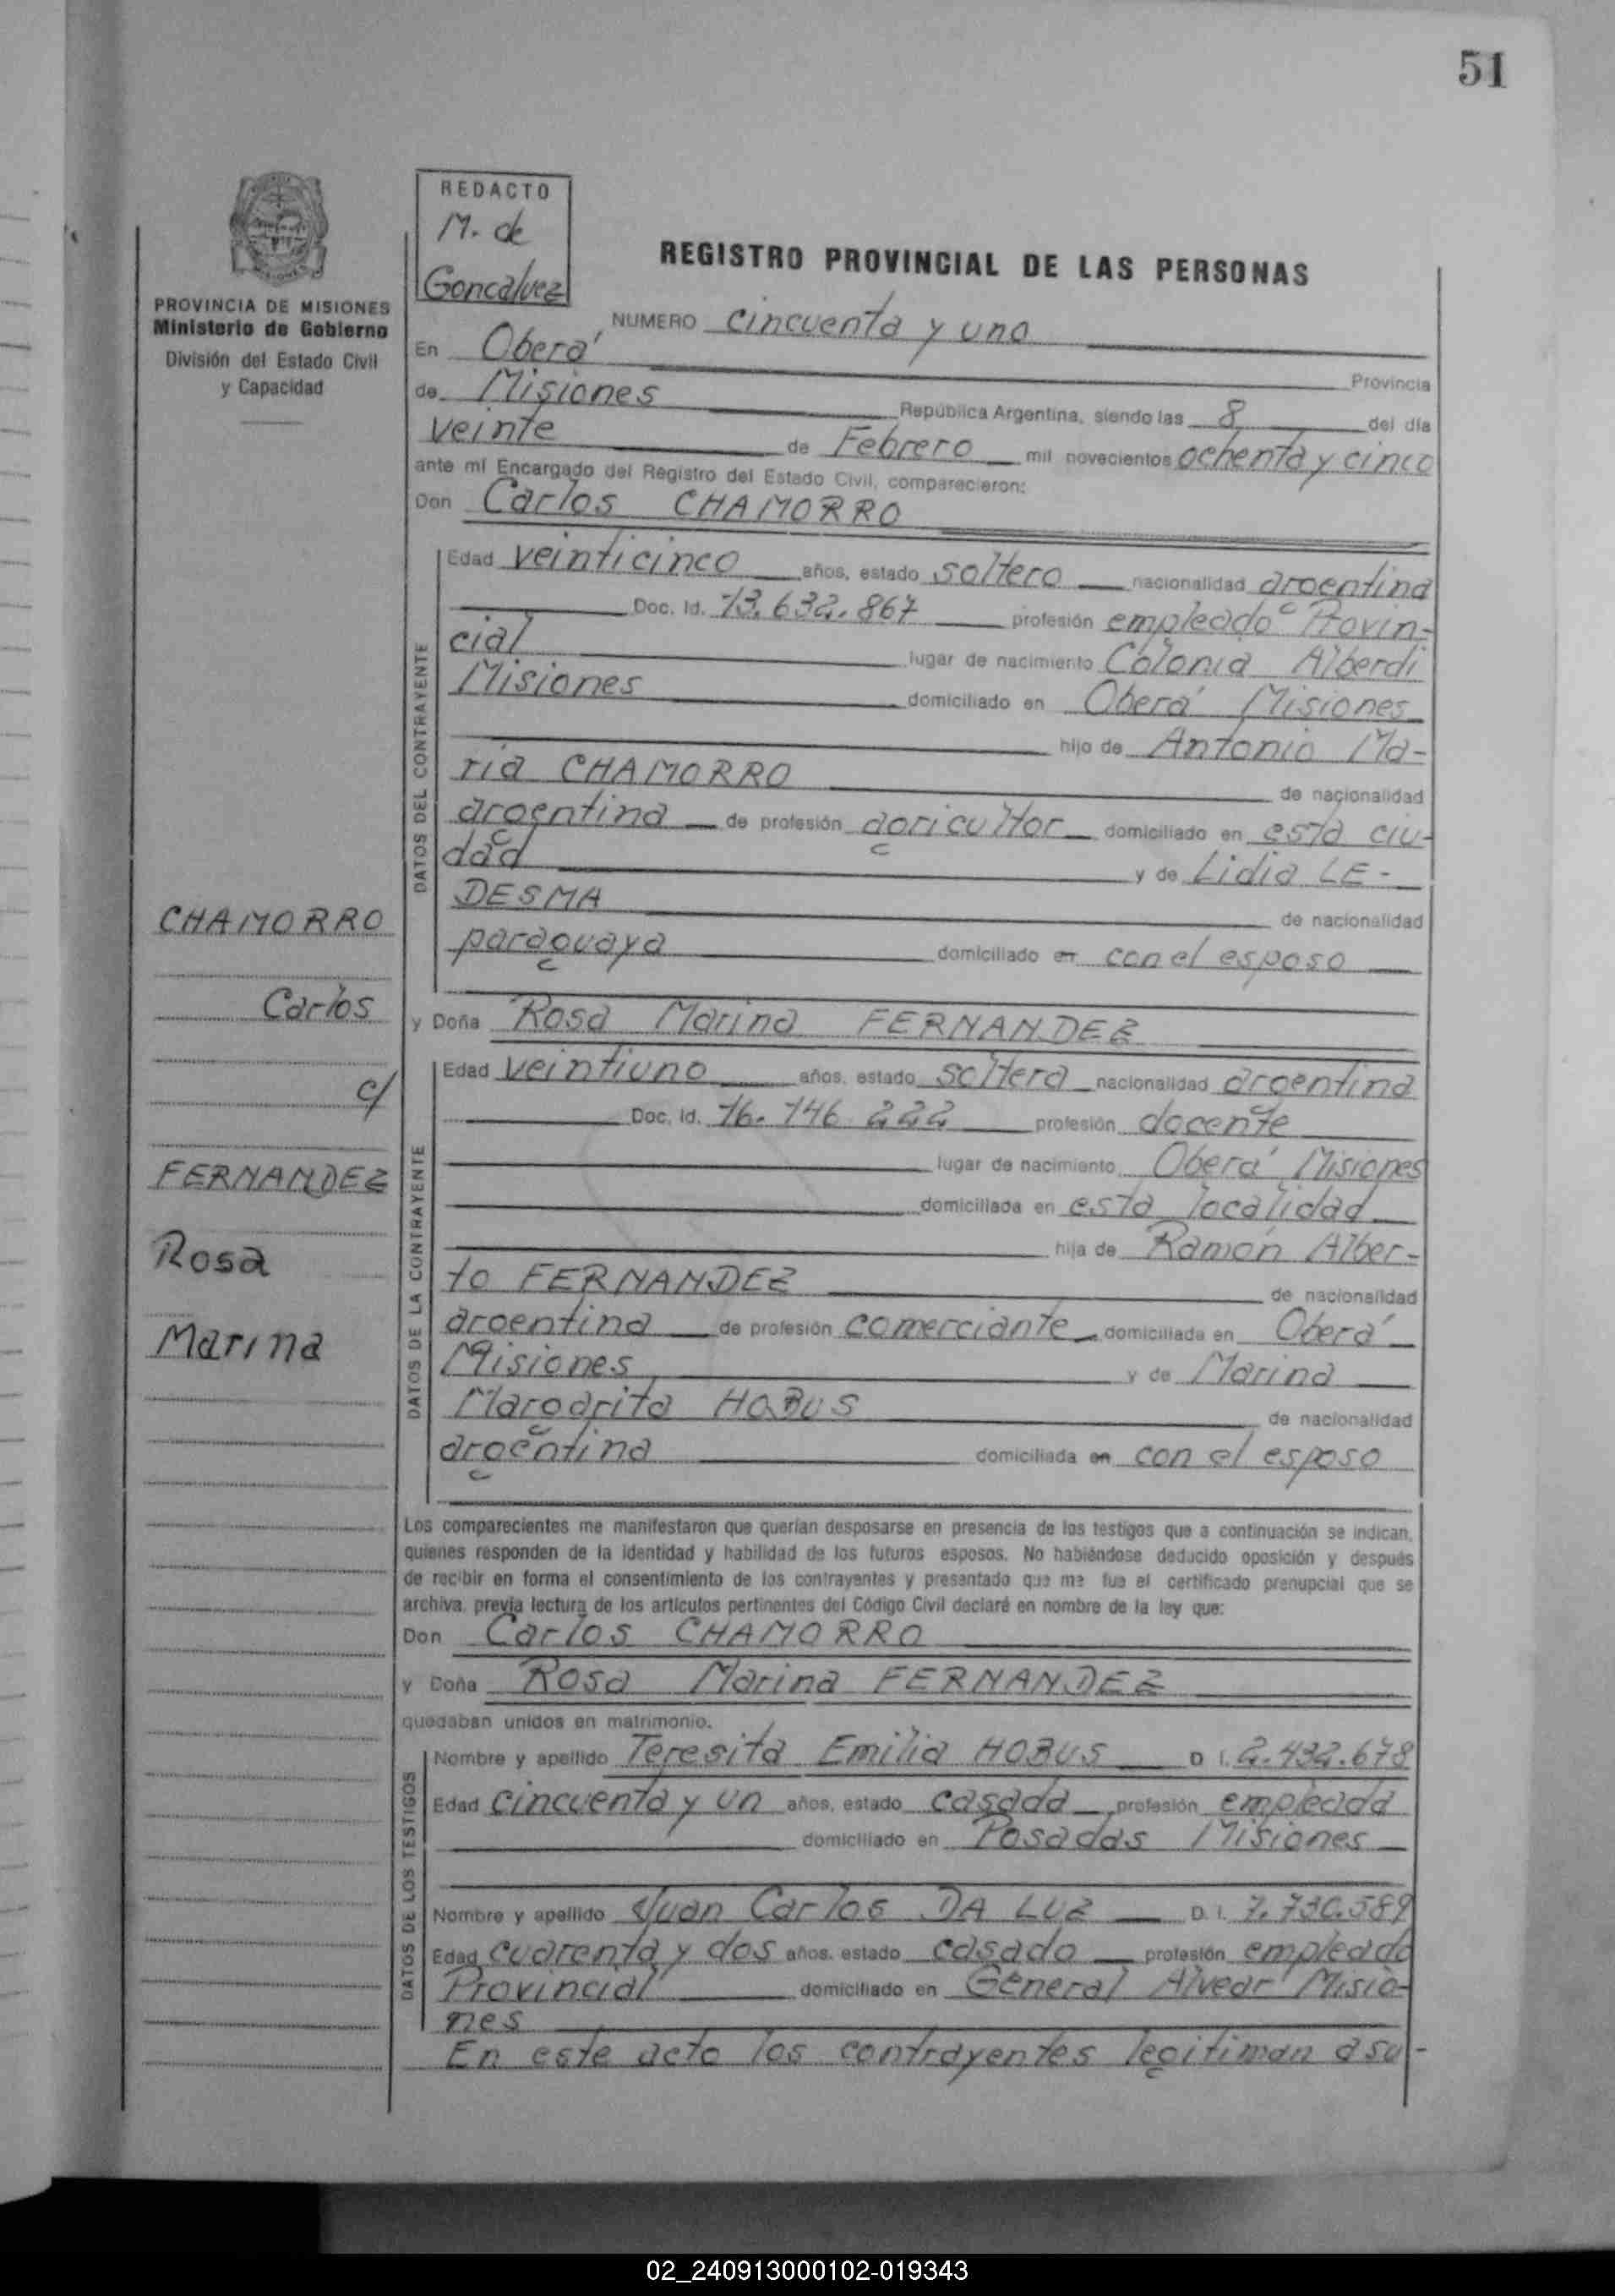 51
PROVINCIA DE MISIONES
Ministerio de Gobierno
División del Estado Civil
y Capacidad
REDACTO
M. de
Goncalvez
REGISTRO PROVINCIAL DE LAS PERSONAS
NUMERO cincuenta y uno
En Oberá Provincia
de Misiones República Argentina, siendo las 8 del día
veinte de Febrero mil novecientos ochenta y cinco
ante mí Encargado del Registro del Estado Civil, comparecieron:
Don Carlos CHAMORRO
DATOS DEL CONTRAYENTE
Edad veinticinco años, estado soltero nacionalidad argentina
Doc. Id. 13.632.867 profesión empleado Provin-
cial lugar de nacimiento Colonia Alberdi
Misiones domiciliado en Oberá Misiones
hijo de Antonio Ma-
ria CHAMORRO de nacionalidad
argentina de profesión agricultor domiciliado en esta ciu-
dad y de Lidia LE-
DESMA de nacionalidad
paraguaya domiciliado en con el esposo
y Doña Rosa Marina FERNANDEZ
DATOS DE LA CONTRAYENTE
Edad veintiuno años, estado soltera nacionalidad argentina
Doc. Id. 16.146.222 profesión docente
lugar de nacimiento Oberá Misiones
domiciliada en esta localidad
hija de Ramón Alber-
to FERNANDEZ de nacionalidad
argentina de profesión comerciante domiciliada en Oberá
Misiones y de Marina
Margarita HOBUS de nacionalidad
argentina domiciliada en con el esposo
CHAMORRO
Carlos
c/
FERNANDEZ
Rosa
Marina
Los comparecientes me manifestaron que querían desposarse en presencia de los testigos que a continuación se indican,
quienes responden de la identidad y habilidad de los futuros esposos. No habiéndose deducido oposición y después
de recibir en forma el consentimiento de los contrayentes y presentado que me fue el certificado prenupcial que se
archiva, previa lectura de los artículos pertinentes del Código Civil declaré en nombre de la ley que:
Don Carlos CHAMORRO
y Doña Rosa Marina FERNANDEZ
quedaban unidos en matrimonio.
DATOS DE LOS TESTIGOS
Nombre y apellido Teresita Emilia HOBUS D I. 2.432.678
Edad cincuenta y un años, estado casada profesión empleada
domiciliado en Posadas Misiones
Nombre y apellido Juan Carlos DA LUZ D. I. 7.730.589
Edad cuarenta y dos años, estado casado profesión empleado
Provincial domiciliado en General Alvear Misio-
nes
En este acto los contrayentes legitiman a su-
02_240913000102-019343